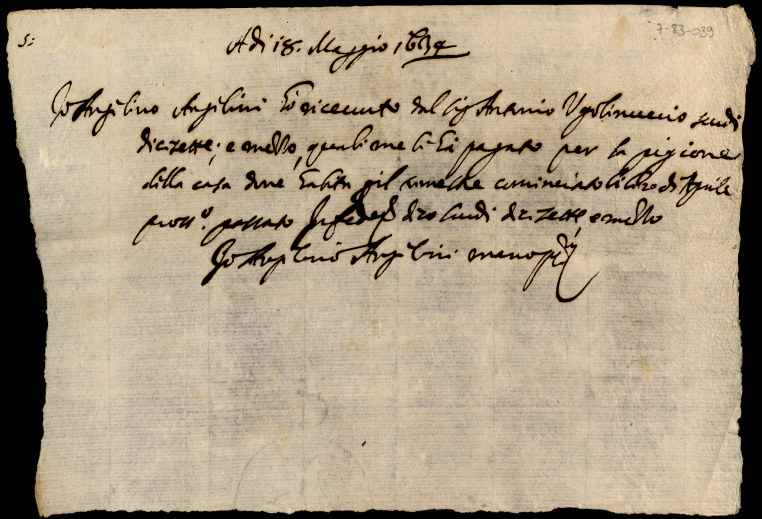 5:
7-83-039
A di 18. Maggio 1634
Io Angilino Angilini ho riceuuto dal Sig Antonio Ugolinuccio scudi
dicisette, e mezzo, quali me li ha pagato per la pigione
della casa doue habita pil semestre cominciato li di Aprile
pross.o passato In fede dico scudi dicisette e mezzo
Io Angilino Angilini mano pp